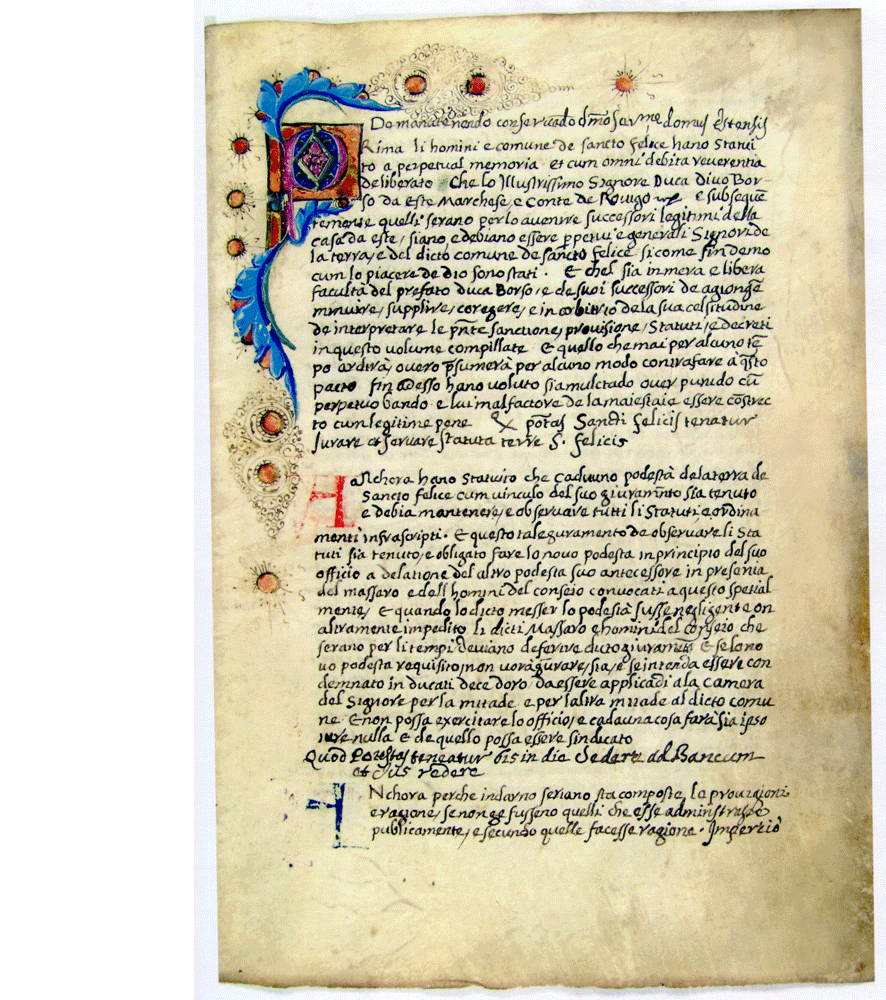 De manutenendo conservando domus Estensis
PRima li homini e comune de sancto felice hano Statui
to a perpetual memoria et cum omni debita reverentia
deliberato Che lo Illustrissimo Signore Duca Divo Bor-
so da este Marchese, e Conte de Rovigo e subseque
temente quelli serano per lo avenire successori legitimi della
casa da este, siano, e debiano essere ppetui e generali Signori de
la terra, e del dicto comune de sancto felice si come fin demo
cum lo piacere de dio sono stati . E chel sia in mera e libera
facultà del prefato duca Borso, e de suoi successori de agiongē
minuire, supplire, coregere, e in arbitrio de la sua celsitudine
de interpretare le pn̄te sanctione, provisione, Statuti, e decreti
in questo volume compillate E quello che mai per alcuno tē
po ardirà, overo p̄sumerà per alcuno modo contrafare à q̄sto
pacto fin adesso hano voluto sia mulctado over punido cū
perpetuo bando e lui malfactore de la maiestaie essere cōstrec
to cum legitime pene potas Sancti felicis tenatur
Jurare et servare statuta terre S. felicis
ANchora hano Statuito che caduuno podestà de la terra de
Sancto felice cum vinculo del suo giuramnto sia tenuto
e debia mantenere, e observare tutti li Statuti e ordina
menti infrascripti . E questo tale guramento de observare li Sta
tuti sia tenuto, e obligato fare lo novo podesta in principio del suo
officio a delatione del altro podesta suo antecessore in presenia
del massaro e dell homini del conseio convocati a questo spetial
mente, E quando lo dicto messer lo podestà fusse negligente on
altramente impedito li dicti Massaro e homini del conseio che
serano per li tempi deviano deferire dicto giuramēto E se lo no
vo podesta requisito, non vora gurare, sia, e se intenda essere con
demnato in ducati dece doro da essere applicadi a la camera
del Signore per la mitade e per laltra mitade al dicto comu
ne E non possa exercitare lo officio, e cadauna cosa farà sia ipso
iure nulla E de quello possa essere sindicato
Quod Potestas teneatur bis in die Sedere ad Bancum
et Jus redere
ANchora perche indarno seriano sta composte, le provisioni
e ragione, se non ge fusseno quelli che esse administrasse
publicamente, e secundo quelle facesse ragione . Imperciò